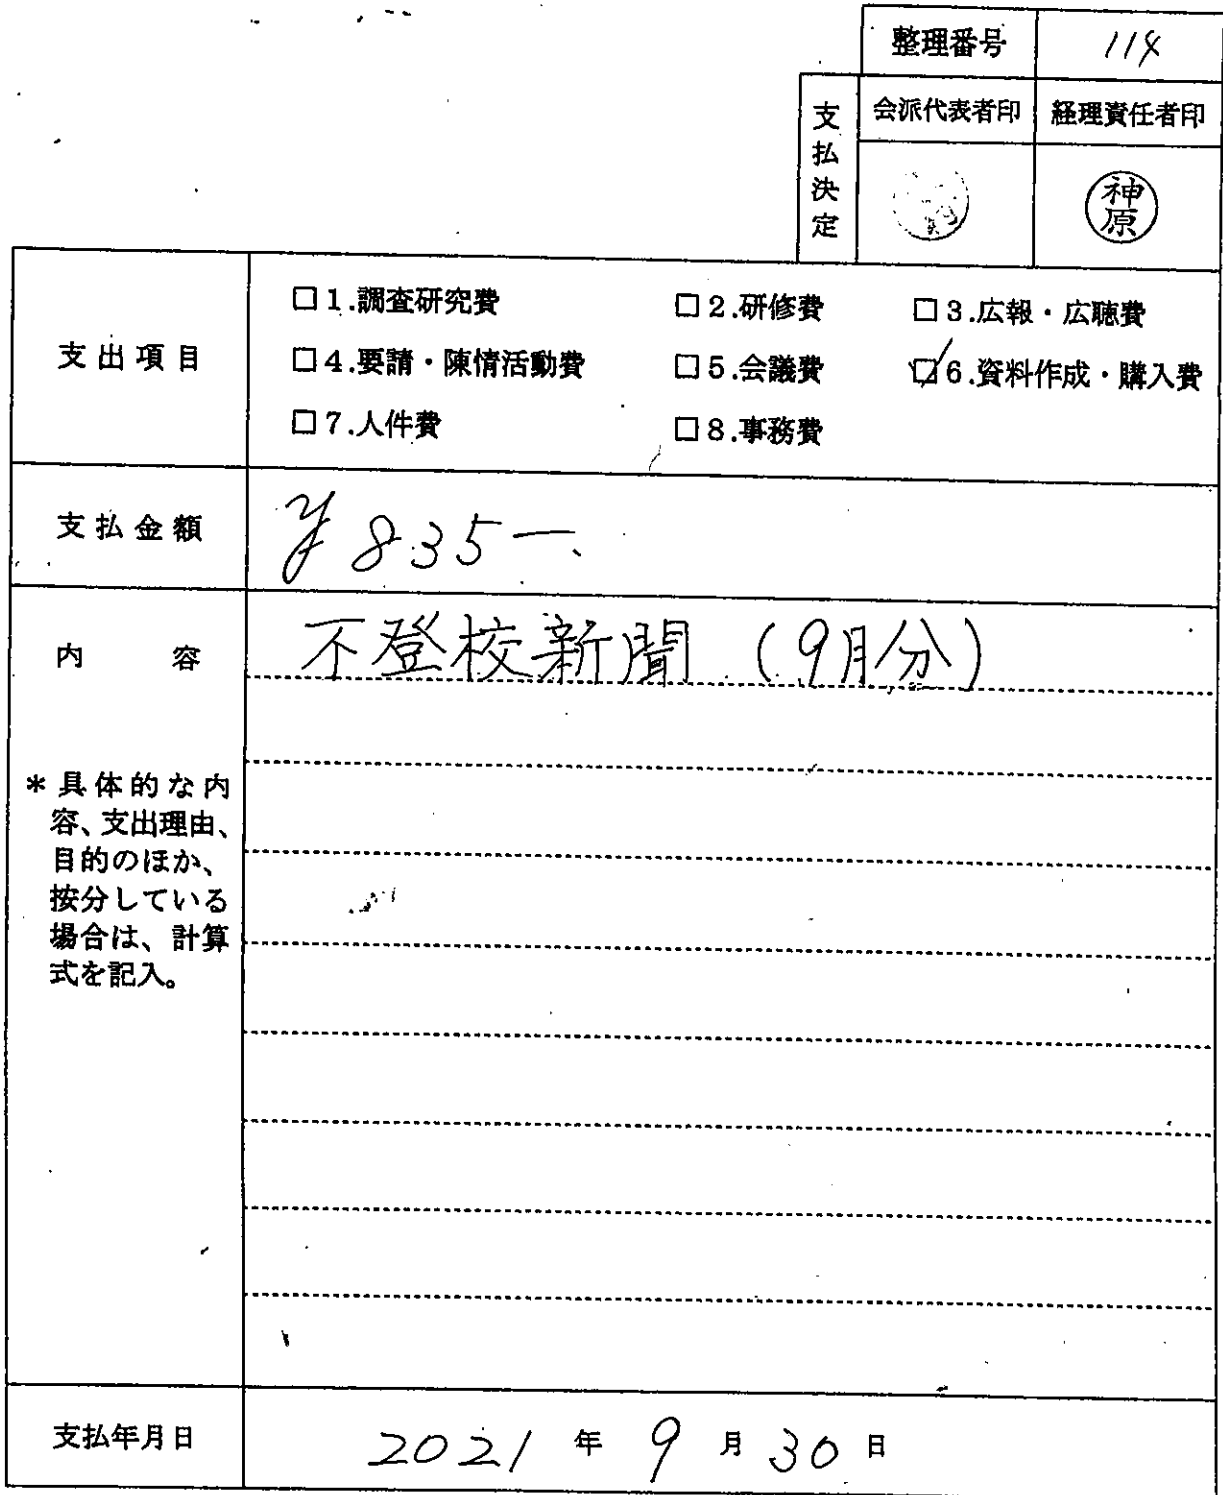 整理番号 114
支払決定 会派代表者印 経理責任者印
神原
支出項目
□1.調査研究費 □2.研修費 □3.広報・広聴費
□4.要請・陳情活動費 □5.会議費 ☑6.資料作成・購入費
□7.人件費 □8.事務費
支払金額 ¥835-.
内容 不登校新聞(9月分)
*具体的な内
容、支出理由、
目的のほか、
按分している
場合は、計算
式を記入。
支払年月日 2021年9月30日